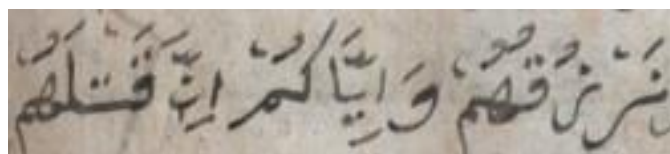 نَرْزُقُهُمْ وَاِيَّاكُمْ اِنَّ قَتْلَهُمْ